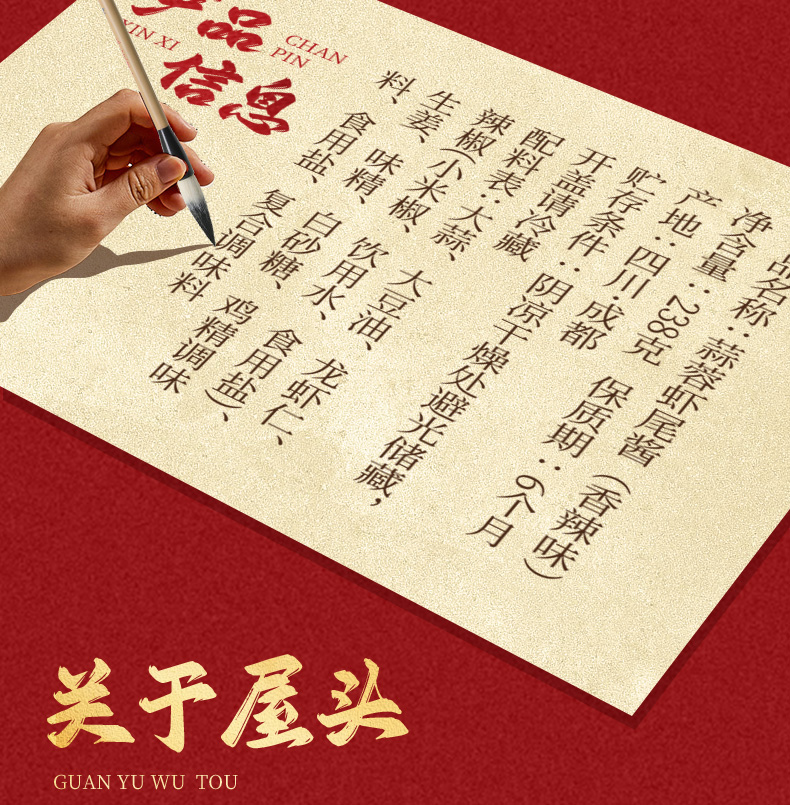 产品
CHAN
PIN
XIN XI
信息
品名称：蒜蓉虾尾酱（香辣味）
净含量：238克 保质期：6个月
产地：四川·成都
贮存条件：阴凉干燥处避光储藏，
开盖请冷藏
配料表：大蒜、大豆油、龙虾仁、
辣椒(小米椒、饮用水、食用盐)、
生姜、味精、白砂糖、鸡精调味
料、食用盐、复合调味料
关于屋头
GUAN YU WU TOU